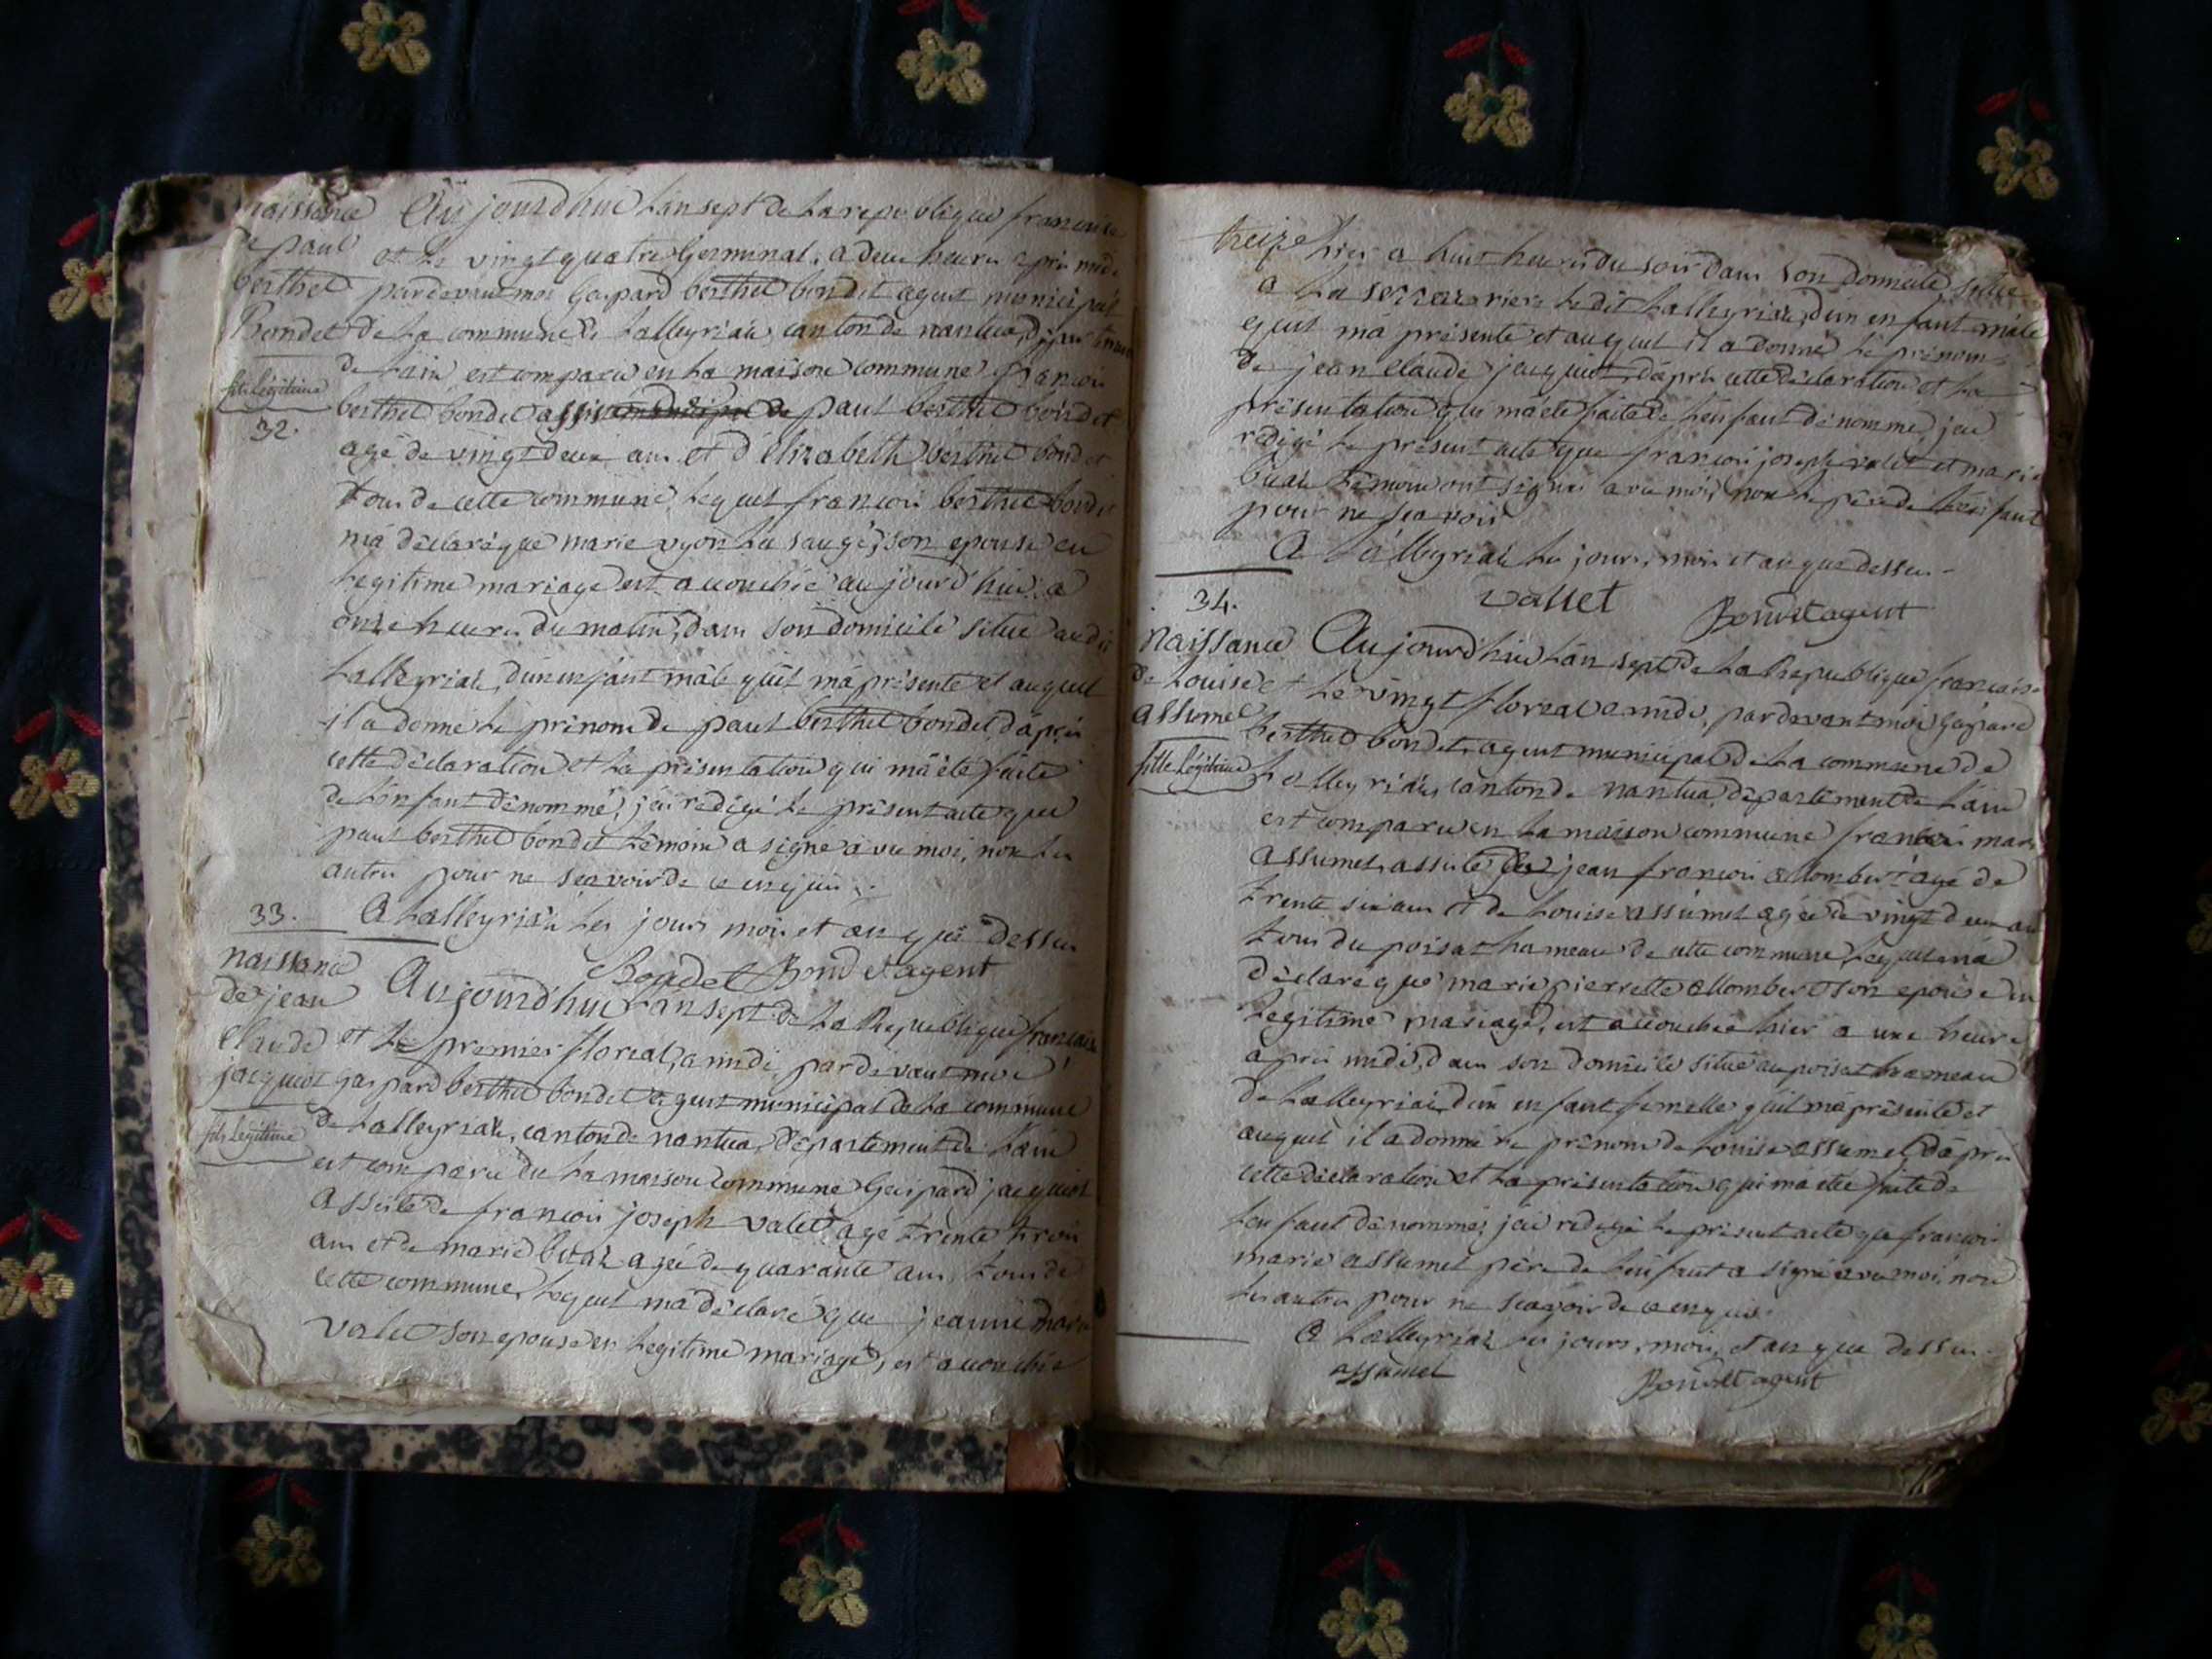 naissance
de paul
berthet
Bondet
fils légitime
32.
Aujourdhui Lan sept de La republique francaise
et Le vingt quatre Germinal, a deux heures aprés midi
pardevant moi Gaspard berthet bondet agent municipal
de La commune de Lalleyriat canton de nantua, departement
de Lain est comparu en La maison commune francois
berthet bondet assisté de paul berthet bondet
agé de vingt deux ans et d'Elizabeth berthet bondet
tous de cette commune, Lequel francois berthet bondet
m'a déclaré que marie vyon La saugé, son epouse en
Legitime mariage est accouchée aujourd'hui a
onze heures du matin, dans son domicile situé audit
Lalleyriat, d'un enfant mâle qu'il m'a présenté et auquel
il a donné Le prénom de paul berthet bondet, d'aprés
cette déclaration et La présentation qui m'a été faite
de L'enfant dénommé, j'ai redigé Le présent acte que
paul berthet bondet témoin a signé avec moi, non Les
autres pour ne scavoir de ce enquis.
A Lalleyriat Les jours mois et an que dessus
Bondet Bondet agent
33.
naissance
de jean
Claude
jacquiot
fils Légitime
Aujourd'hui Lan sept de La Republique francaise
et Le premier floreal, a midi, pardevant moi
gaspard berthet bondet agent municipal de La commune
de Lalleyriat, canton de nantua, département de Lain
est comparu en La maison commune Gaspard jacquiot
assisté de francois joseph valet, agé trente trois
ans et de marie buat agée de quarante ans, tous de
cette commune, Lequel m'a déclaré que jeanne marie
valet son epouse en Legitime mariage, est accouchée
treize
hier a huit heures du soir dans son domicile situé
a La Ledit Lalleyriat, d'un enfant mâle
qu'il m'a présenté et auquel il a donné Le prénom
de jean Claude jacquiot, d'aprés cette déclaration et La
présentation qui m'a été faite de L'enfant dénommé, j'ai
rédigé Le présent acte que francois joseph valet et marie
buat témoins ont signé avec moi, non Le pére de L'enfant
pour ne scavoir
A Lalleyriat Les jours, mois et an que dessus.
vallet Bondet agent
34.
Naissance
de Louise
assumel
fille Légitime
Aujourd'hui Lan sept de La Republique francaise
et Le vingt floreal a midi, pardevant moi Gaspard
berthet bondet agent municipal de La commune de
Lalleyriat, canton de nantua, département de Lain
est comparu en La maison commune francois marie
assumel assisté de jean francois allombert agé de
trente six ans et de Louise assumel agée de vingt deux ans
tous du poisat hameau de cette commune, Lequel m'a
déclaré que marie pierrette allombert son epouse en
Legitime mariage, est accouchée hier a une heure
aprés midi, dans son domicile situé au poisat hameau
de Lalleyriat, d'un enfant femelle qu'il m'a présenté et
auquel il a donné Le prénom de Louise assumel, d'aprés
cette déclaration et La présentation qui m'a été faite de
L'enfant dénommé, j'ai redigé Le présent acte que francois
marie assumel pére de L'enfant a signé avec moi, non
Les autres pour ne scavoir de ce enquis.
A Lalleyriat Les jours, mois, et an que dessus.
assumel Bondet agent